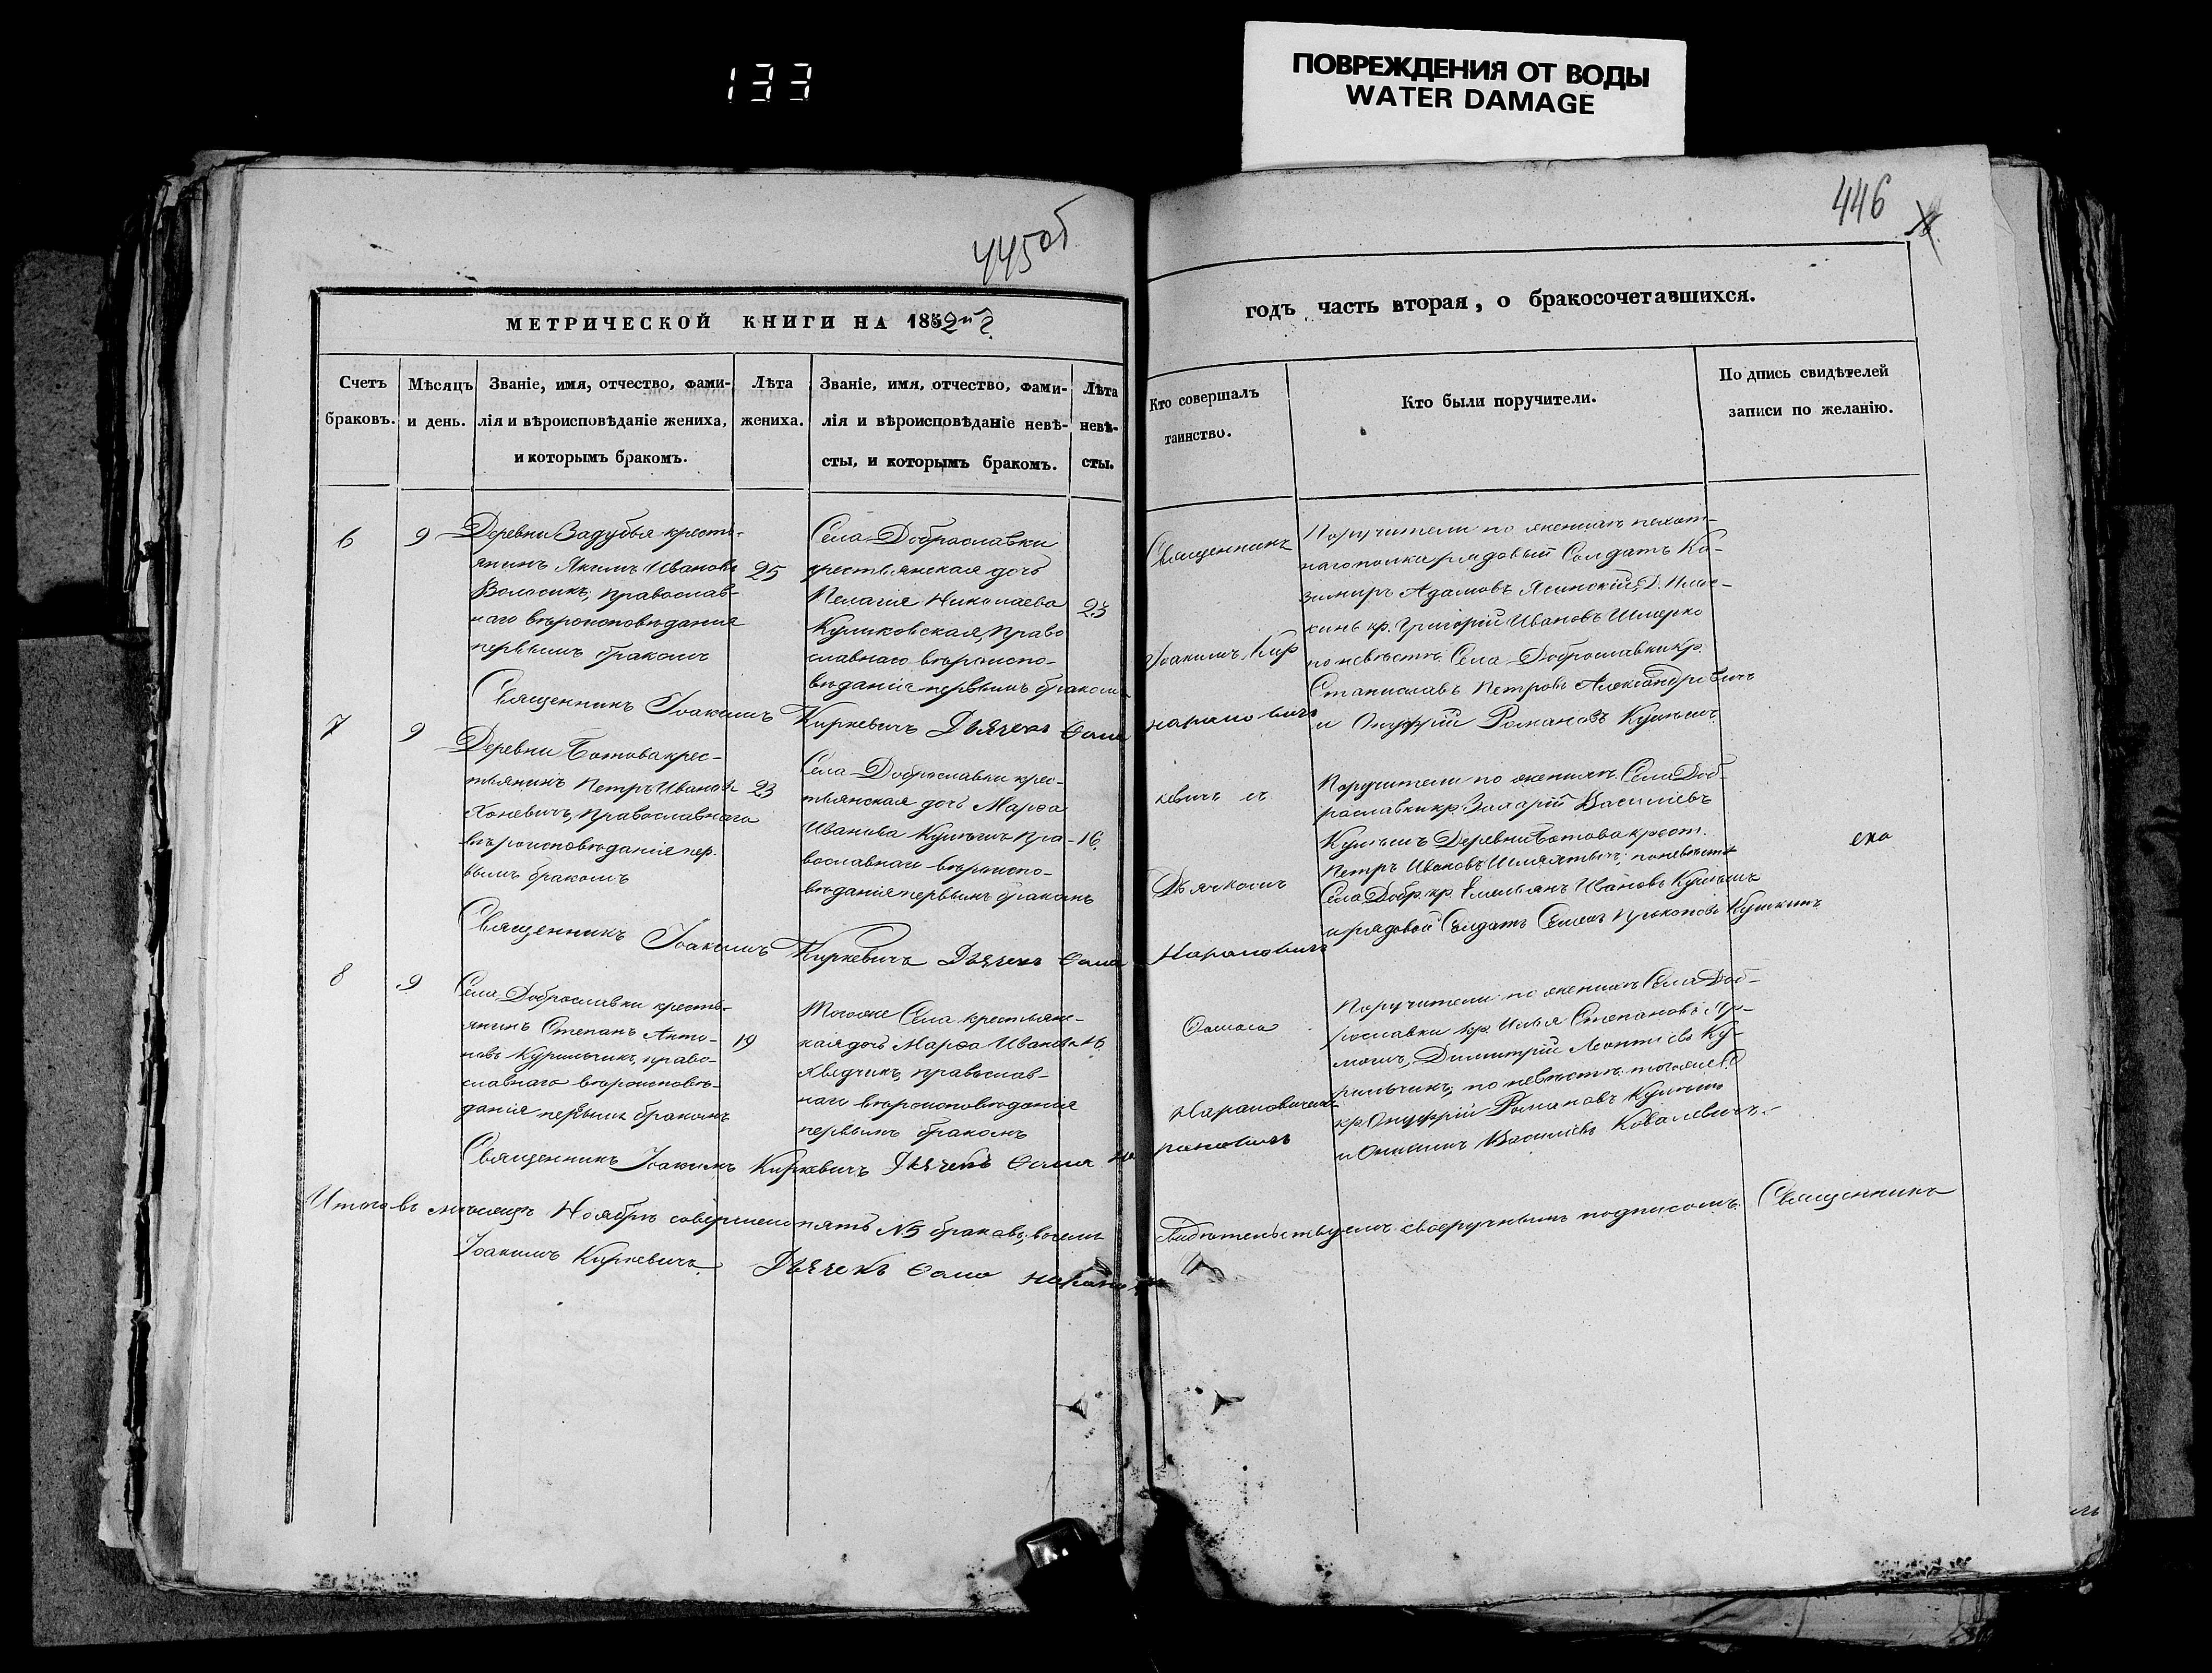 133
ПОВРЕЖДЕНИЯ ОТ ВОДЫ
WATER DAMAGE
445об
446
МЕТРИЧЕСКОЙ КНИГИ НА 1852й
годъ часть вторая, о бракосочетавшихся.
Счетъ браковъ.
Мѣсяцъ и день.
Званіе, имя, отчество, фами-
лія и вѣроисповѣданіе жениха,
и которымъ бракомъ.
Лѣта
жениха.
Званіе, имя, отчество, фами-
лія и вѣроисповѣданіе невѣ-
сты, и которымъ бракомъ.
Лѣта
невѣ-
сты.
Кто совершалъ
таинство.
Кто были поручители.
По дпись свидѣтелей
записи по желанію.
6
9
Деревни Задубья кресть-
янинъ Якимъ Ивановъ
Волосикъ, православ-
наго вѣроисповѣданія
первымъ бракомъ
25
Села Доброславки
крестьянская дочь
Пелагія Николаева
Куликовская, право
славнаго вѣроиспо-
вѣданія первымъ бракомъ
23
Священникъ
Іоакимъ Кир
Поручители по женихѣ пехот-
наго полка рядовый Солдатъ Ка-
зимиръ Адамовъ Ясинскій, Д. Плос-
кинь кр. Григорій Ивановъ Шмерко
по невѣстѣ Села Доброславки кр.
Станиславъ Петровъ Александровичъ
и Онуфрій Романовъ
Священникъ Іоакимъ Киркевичъ Дьячекъ Ѳома Нарановичъ
7
9
Деревни Ботова крес-
тьянинъ Петръ Ивановъ
Хоневичъ, православнаго
вѣроисповѣданія пер-
вымъ бракомъ
23
Села Доброславки крес-
тьянская дочь Марѳа
Иванова пра-
вославнаго вѣроиспо-
вѣданія первымъ бракомъ
16
кевичъ съ
Дьячкомъ
Поручители по женихѣ Села Доб-
рославки кр. Захарій Василіевъ
Деревни Ботова крест.
Петръ Ивановъ по невѣстѣ
Села Добр. кр. Емельянъ Ивановъ
и рядовой Солдатъ Семенъ Прокоповъ
Священникъ Іоакимъ Киркевичъ Дьячекъ Ѳома Нарановичъ
8
9
Села Доброславки кресть-
янинъ Степанъ Анто-
новъ Курильчикъ, право-
славнаго вѣроисповѣ-
данія первымъ бракомъ
19
Тогоже Села крестьянс-
кая дочь Марѳа Иванова
православ-
наго вѣроисповѣданія
первымъ бракомъ
16
Ѳомою
Нарановичемъ
Поручители по женихѣ Села Доб-
рославки кр. Илья Степановъ
Димитрій Леонтіевъ Ку-
рильчикъ, по невѣстѣ тогоже С.
кр. Онуфрій Романовъ
и Василіевъ Ковалевичъ
Священникъ Іоакимъ Киркевичъ Дьячекъ Ѳома Нарановичъ
Итого въ мѣсяцѣ Ноябрѣ совершено пять №5 браковъ, въ чемъ Свидѣтельствуемъ своеручнымъ подписомъ. Священникъ
Іоакимъ Киркевичъ Дьячекъ Ѳома Нарановичъ